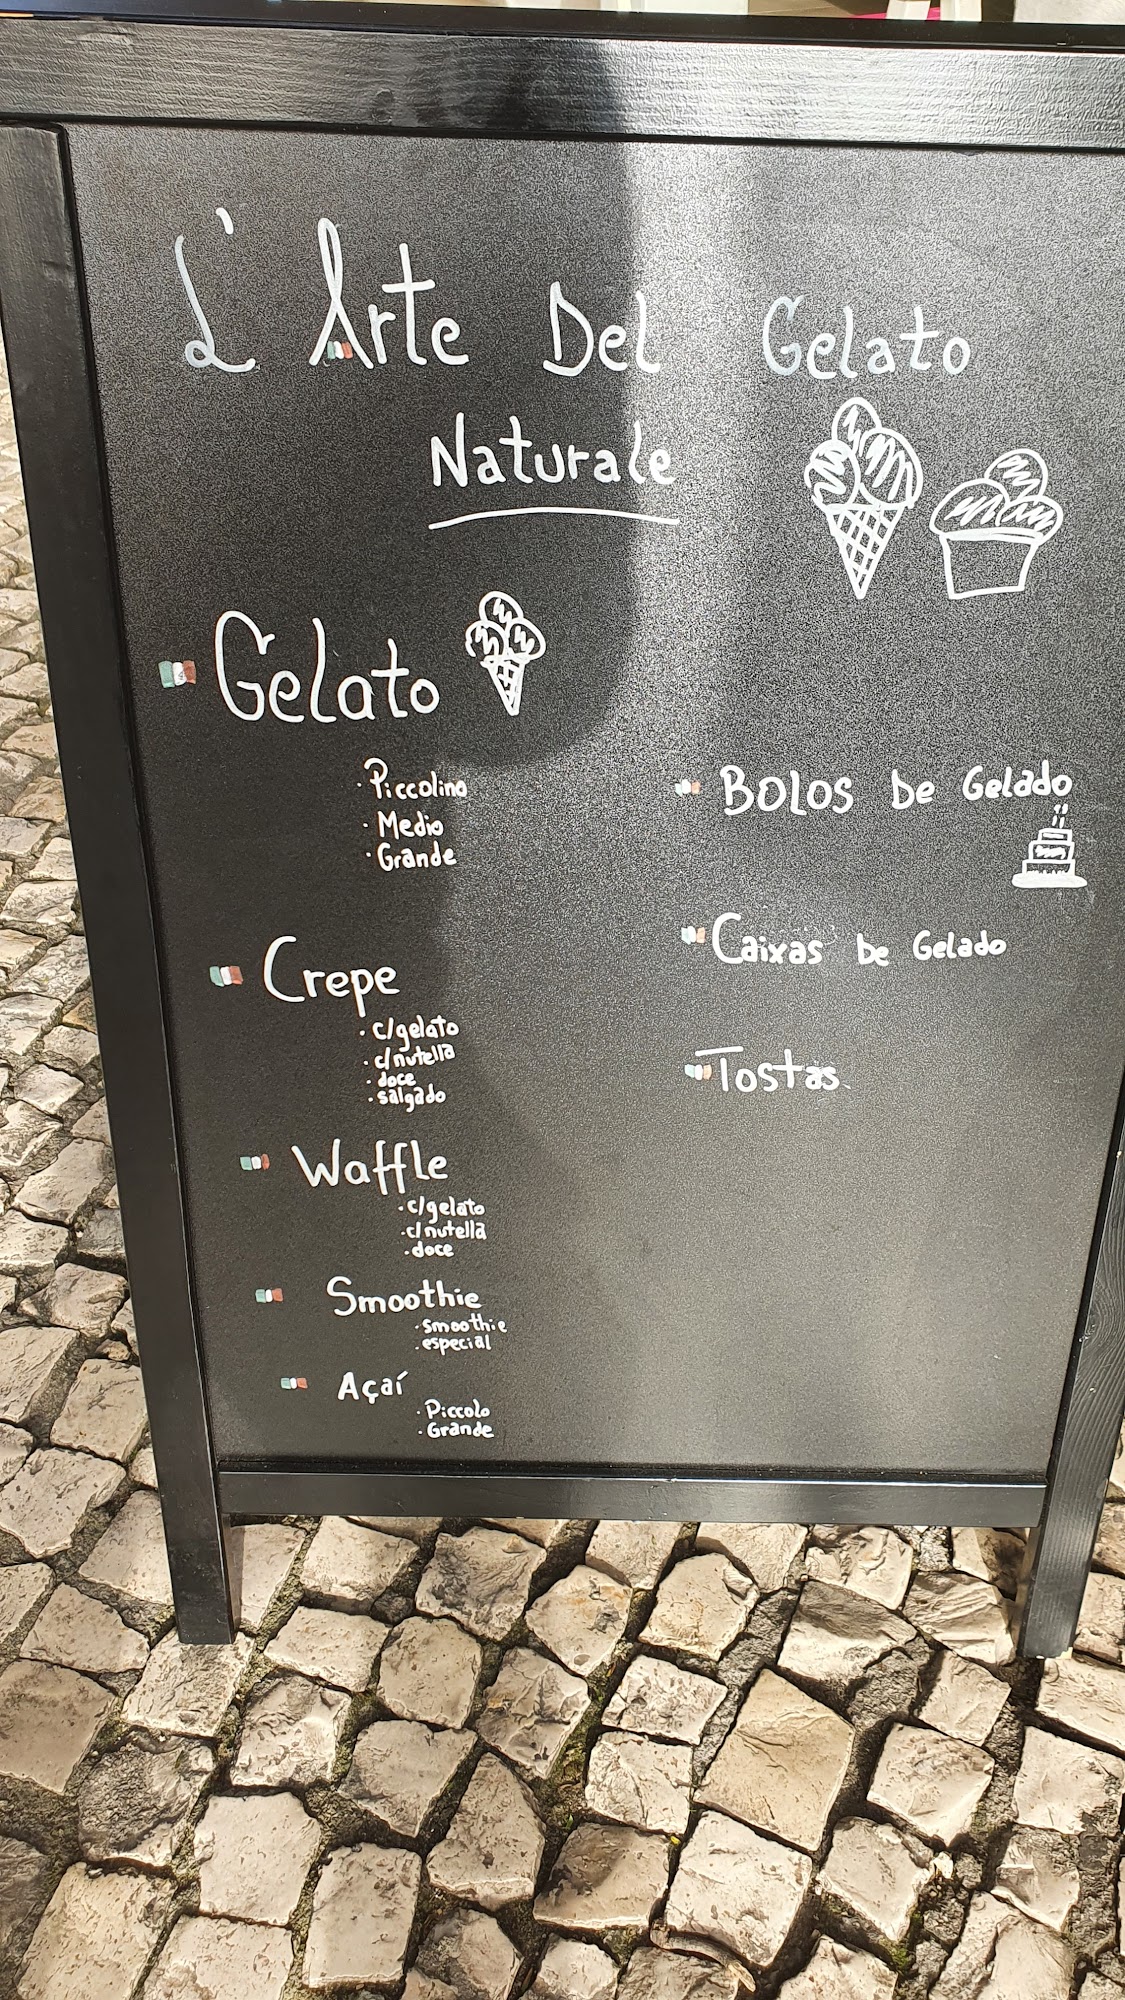 L'Arte Del Gelato
Naturale
Gelato
· Piccolino
· Medio
· Grande
Crepe
· c/gelato
· c/nutella
· doce
· salgado
Waffle
· c/gelato
· c/nutella
· doce
Smoothie
· smoothie
· especial
Açaí
· Piccolo
· Grande
Bolos De Gelado
Caixas De Gelado
Tostas